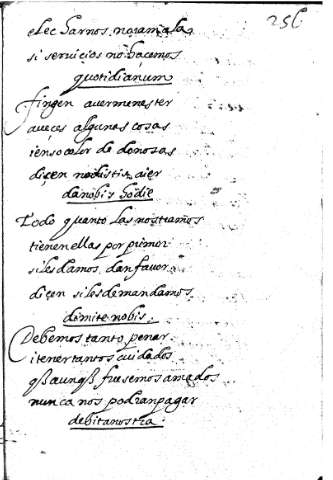 256
elec harnos noramala
si servicios no hacemos
quotidianum
fingen aver menester
aveces algunas cosas
i en so color de donosas
diçen no distis aier
da nobis hodie
Todo quanto las mostramos
tienen ellas por primor
si les damos dan favor
diçen si les demandamos
dimite nobis.
Debemos tanto penar
i tener tantos cuidados
q̃ aunq̃ fuesemos amados
nunca nos podran pagar
debita nostra.